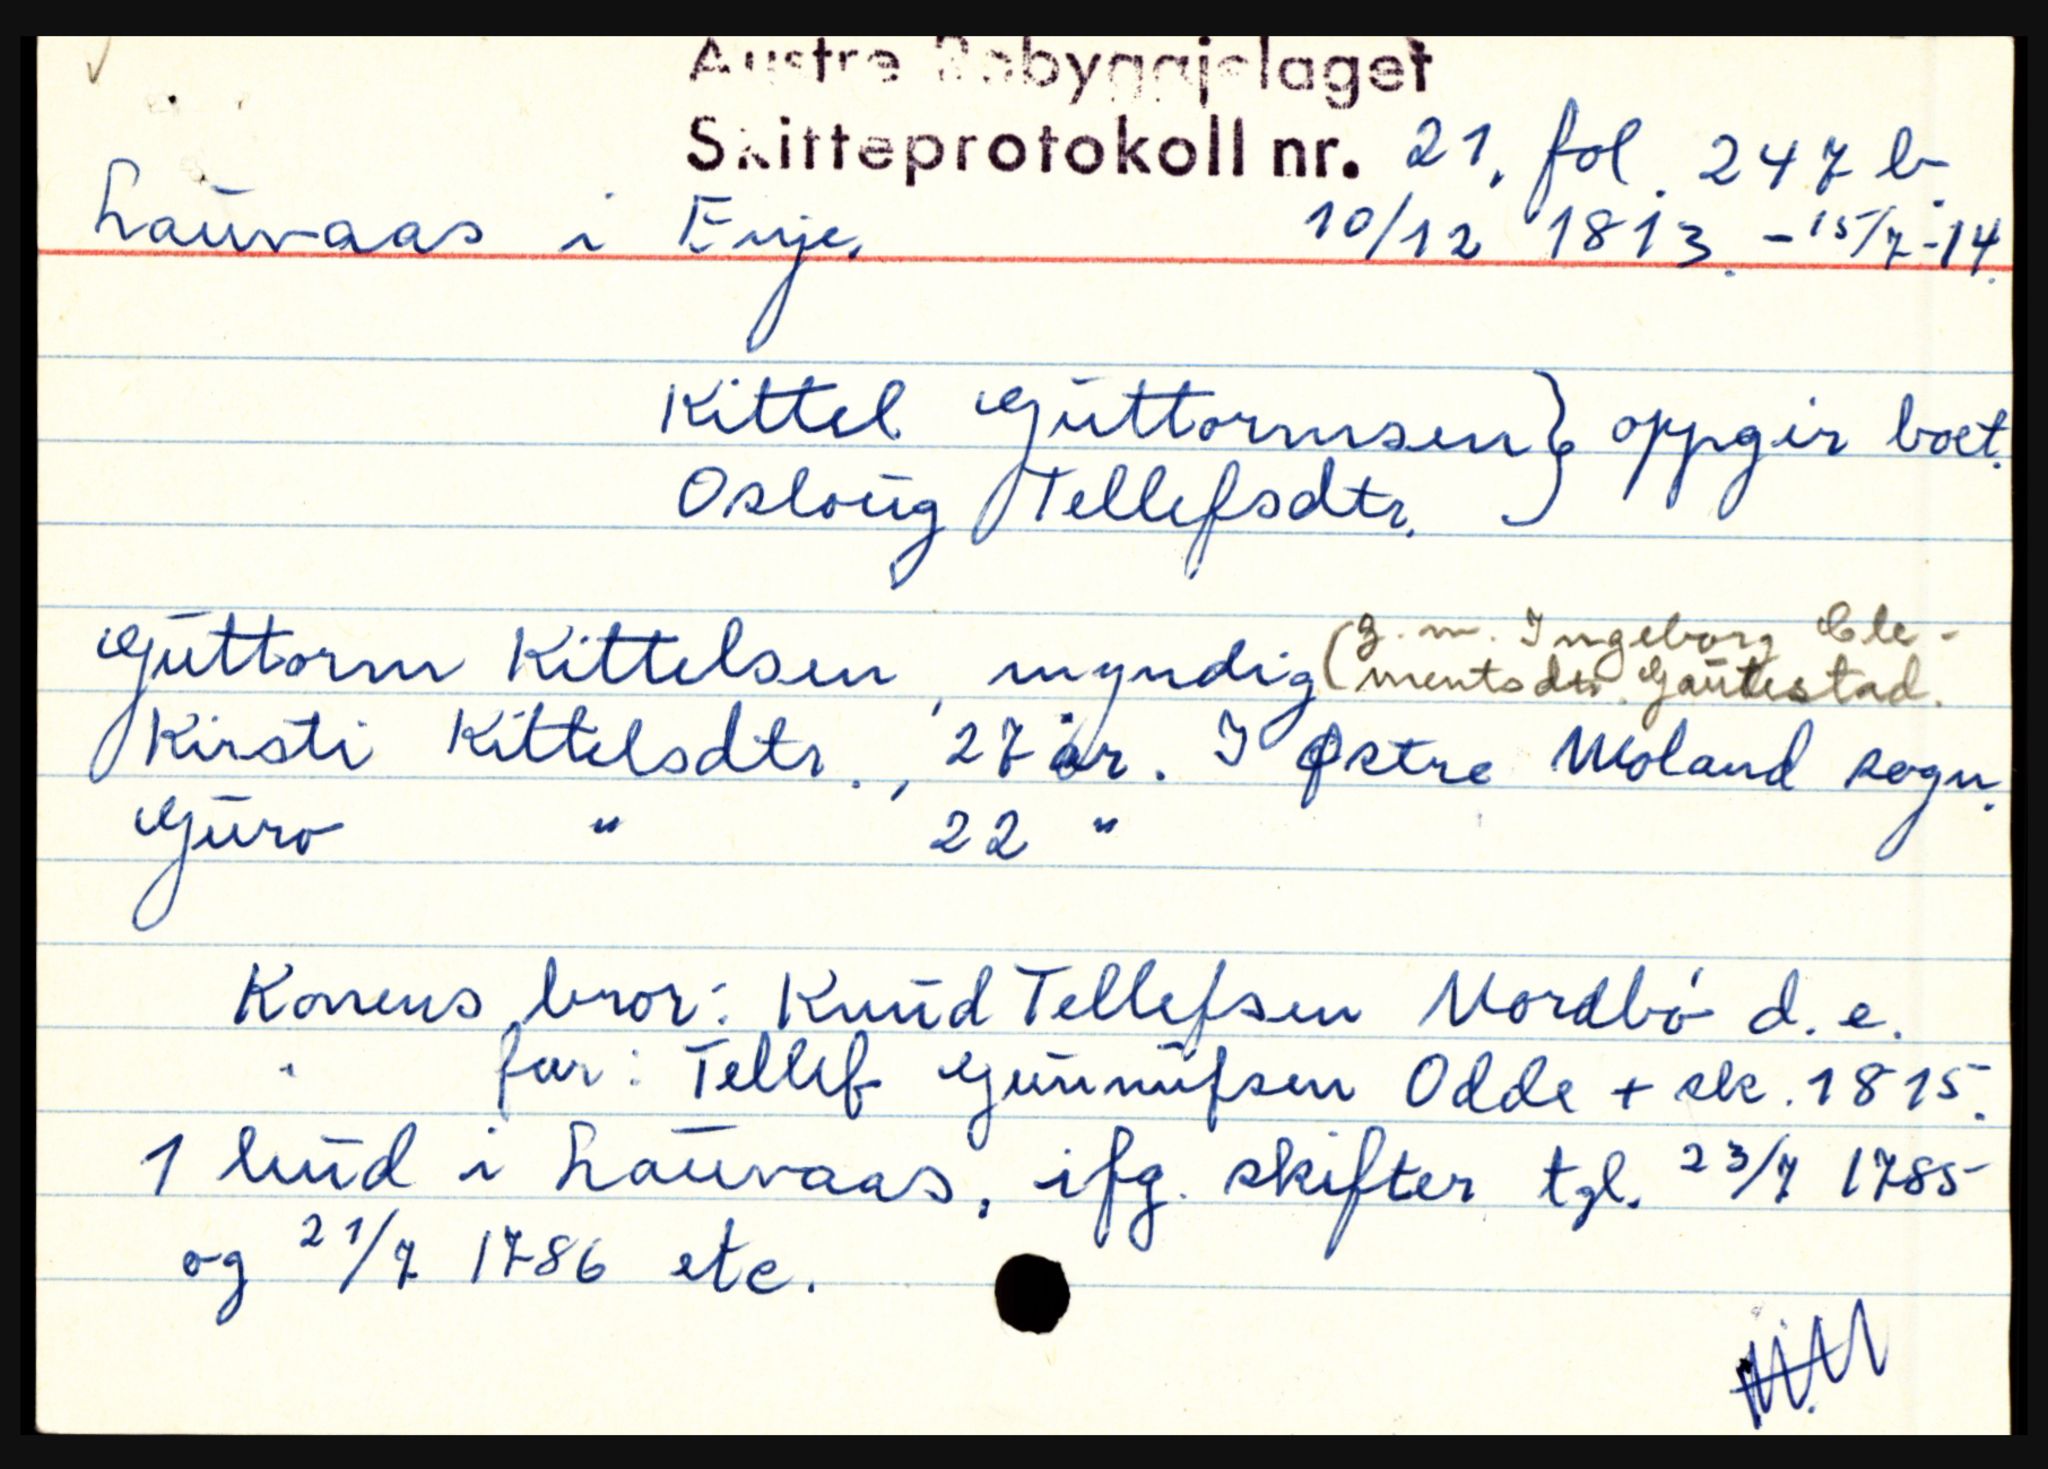 Austre Robyggjelaget
Skifteprotokoll nr. 21, fol. 247 b.
Lauvaas i Evje. 10/12 1813. - 15/7 - 14.
Kittel Guttormsen } oppgir boet.
Osloug Tellefsdtr.
Guttorm Kittelsen, myndig (g. m. Ingeborg Cle-
mentsdtr. Gautestad.
Kirsti Kittelsdtr., 27 år. I Østre Moland sogn.
Guro " 22 "
Konens bror: Knud Tellefsen Nordbö d. e.
" far: Tellef Gunnufsen Odde + sk. 1815.
1 hud i Lauvaas, ifg. skifter tgl. 23/7 1785
og 21/7 1786 etc.